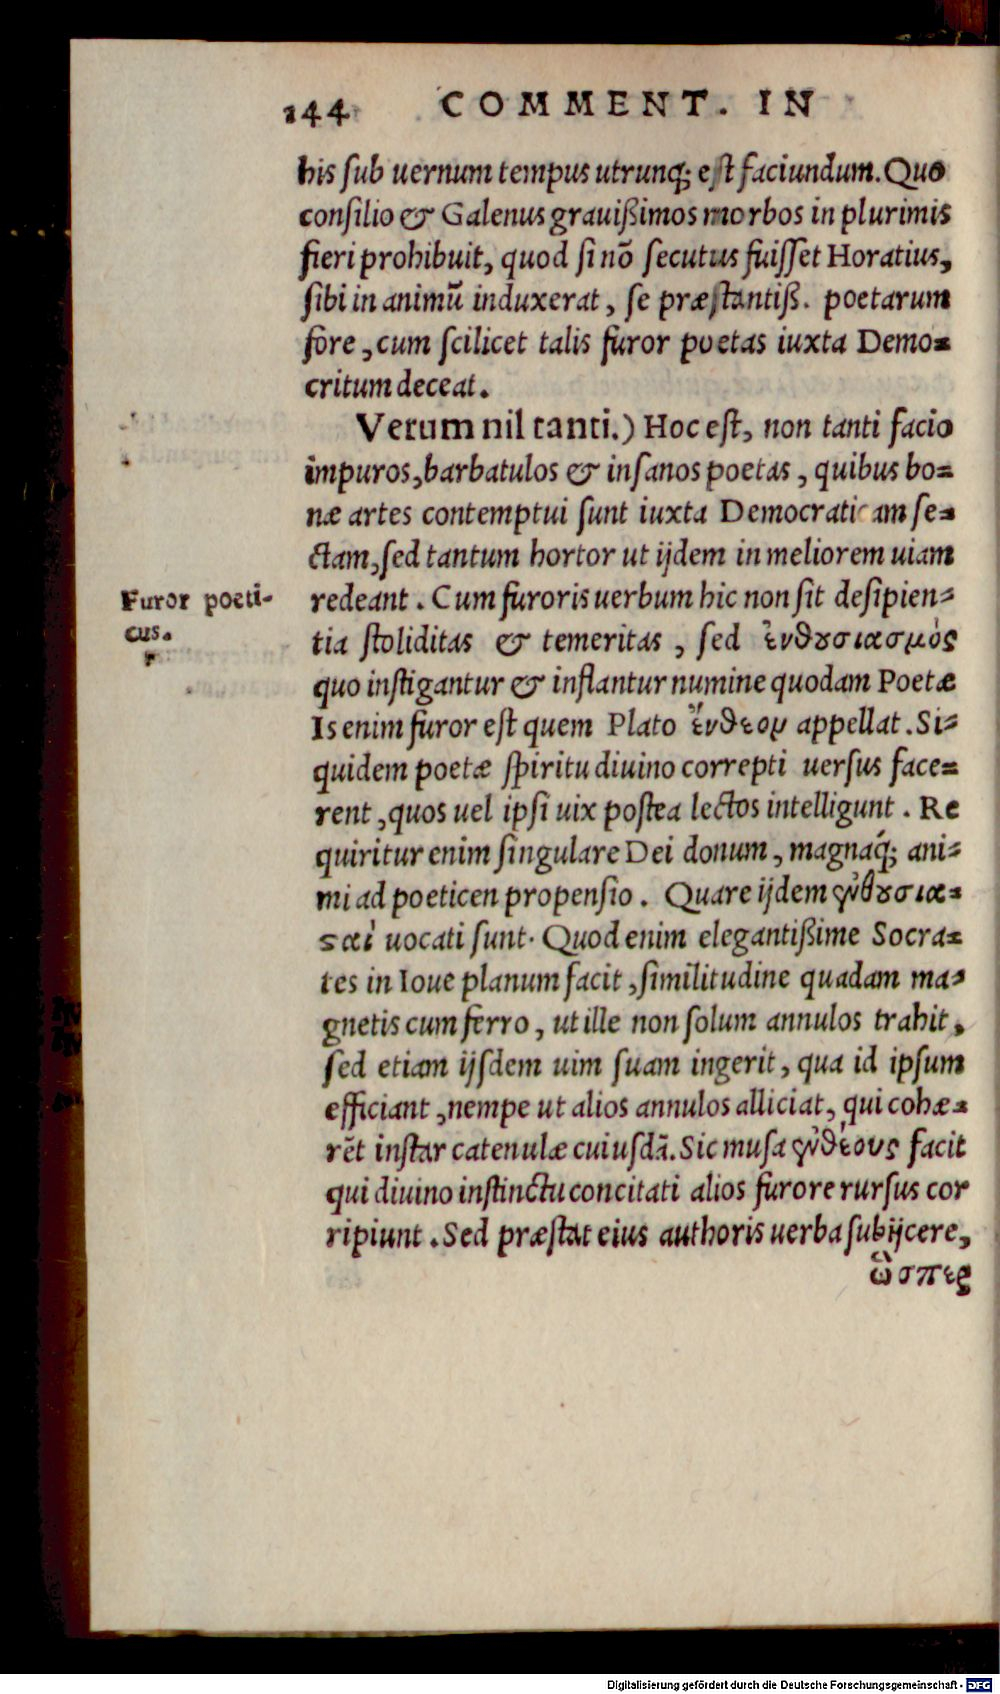 144 COMMENT. IN
his sub uernum tempus utrunq; est faciundum. Quo
consilio & Galenus grauißimos morbos in plurimis
fieri prohibuit, quod si nō secutus fuisset Horatius,
sibi in animū induxerat, se præstantiß. poetarum
fore, cum scilicet talis furor poetas iuxta Demo=
critum deceat.
Verum nil tanti.) Hoc est, non tanti facio
impuros, barbatulos & insanos poetas, quibus bo=
næ artes contemptui sunt iuxta Democraticam se=
ctam, sed tantum hortor ut ijdem in meliorem uiam
Furor poeti-
cus.
redeant. Cum furoris uerbum hic non sit desipien=
tia stoliditas & temeritas, sed ἐνθουσιασμὸς
quo instigantur & inflantur numine quodam Poetæ
Is enim furor est quem Plato ἔνθεον appellat. Si=
quidem poetæ spiritu diuino correpti uersus face=
rent, quos uel ipsi uix postea lectos intelligunt. Re
quiritur enim singulare Dei donum, magnaq́; ani=
mi ad poeticen propensio. Quare ijdem ἐνθουσια=
ϛαὶ uocati sunt. Quod enim elegantißime Socra=
tes in Ioue planum facit, similitudine quadam ma=
gnetis cum ferro, ut ille non solum annulos trahit,
sed etiam ijsdem uim suam ingerit, qua id ipsum
efficiant, nempe ut alios annulos alliciat, qui cohæ=
rēt instar catenulæ cuiusdā. Sic musa ἐνθέους facit
qui diuino instinctu concitati alios furore rursus cor
ripiunt. Sed præstat eius authoris uerba subijcere,
ὥσπερ
Digitalisierung gefördert durch die Deutsche Forschungsgemeinschaft - DFG